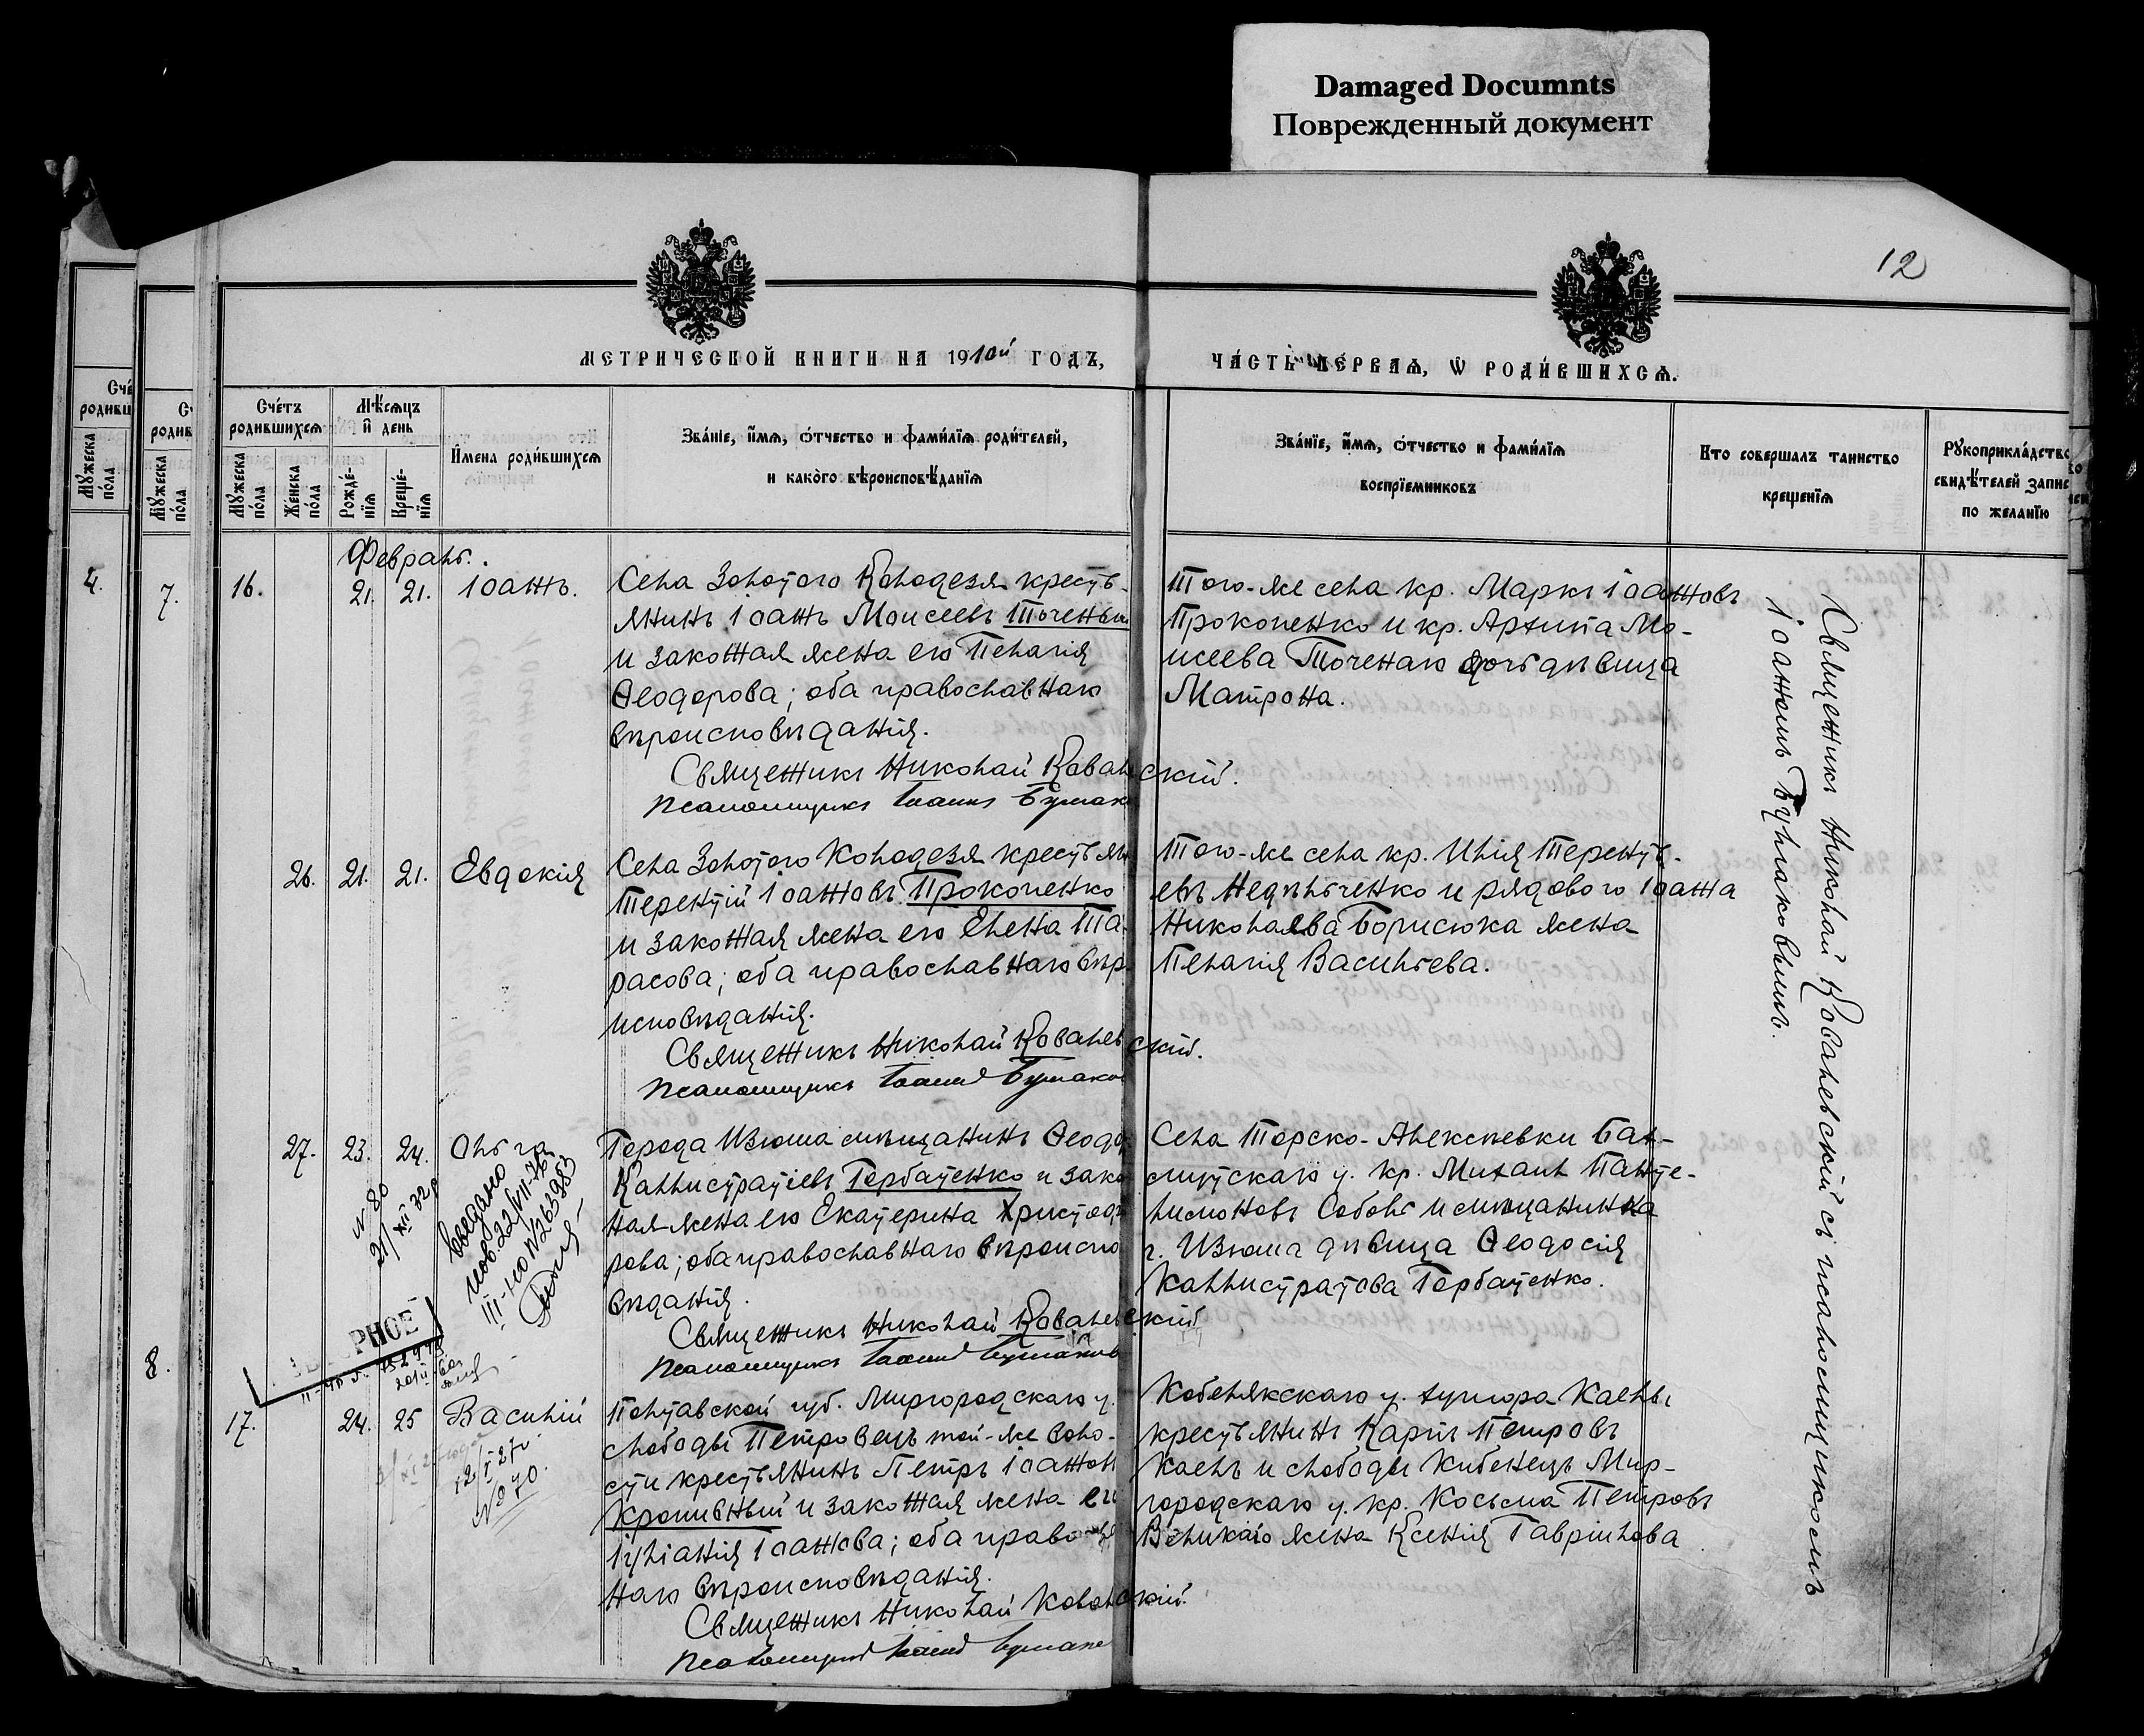 Damaged Documnts
Поврежденный документ
12
МЕТРИЧЕСКОЙ КНИГИ НА 1910й ГОДЪ,
ЧА́СТЬ ПЕ́РВАѦ, Ѡ РОДИ́ВШИХСѦ.
Сче́тъ родившихсѧ
Мѣ́сѧцъ и день
Мꙋжеска по́ла
Же́нска по́ла
Рожде́нїѧ
Креще́нїѧ
И́мена роди́вшихсѧ
Зва́нїе, и́мѧ, ѻ́тчество и фами́лїѧ роди́телей,
и како́го вѣроисповѣ́данїѧ
Зва́нїе, и́мѧ, ѻ́тчество и фами́лїѧ
воспрїемниковъ
Кто совершалъ таинство
крещенїѧ
Рꙋкоприкла́дство
свидѣ́телей запис
по желанїю
4.
7.
8.
Февраль.
16.
21.
21.
Іоаннъ.
Села Золотого Колодезя кресть-
янинъ Іоаннъ Моисеевъ Точеный
и законная жена его Пелагія
Ѳеодорова; оба православнаго
вѣроисповѣданія.
Священникъ Николай Ковалевскій.
Псаломщикъ Іоаннъ Булгаков
Того-же села кр. Маркъ Іоанновъ
Прокопенко и кр. Архипа Мо-
исеева Точенаго дочь дѣвица
Матрона.
26.
21.
21.
Евдокія
Села Золотого Колодезя крестьян
Терентій Іоанновъ Прокопенко
и законная жена его Елена Та-
расова; оба православнаго вѣро
исповѣданія.
Священникъ Николай Ковалевскій.
Псаломщикъ Іоаннъ Булгаков
Того-же села кр. Илія Теренть-
евъ Недѣльченко и рядового Іоанна
Николаева Борисюка жена
Пелагія Васильева.
27.
23.
24.
Ольга
Города Изюма мѣщанинъ Ѳеодо
Каллистратіевъ Горбатенко и зако
ная жена его Екатерина Христофо
рова; оба православнаго вѣроиспо
вѣданія.
Священникъ Николай Ковалевскій
Псаломщикъ Іоаннъ Булгаков
Села Торско-Алексѣевки Бах-
мутскаго у. кр. Михаилъ Панте-
лимоновъ Соболь и мѣщанинка
г. Изюма дѣвица Ѳеодосія
Каллистратова Горбатенко.
N 80
21/XII 32 г
22/VII-76
III-НО N 263983
РНОЕ
17.
24.
25
Василій
12/I-27 г.
№ 70.
Полтавской губ. Миргородскаго у.
слободы Петровецъ той-же воло-
сти крестьянинъ Петръ Іоаннов
Кропивный и законная жена его
Іуліанія Іоаннова; оба православ
наго вѣроисповѣданія.
Священникъ Николай Ковалевскій.
Псаломщикъ Іоаннъ Булгаков
Кобелякскаго у. хутора Каены
крестьянинъ Карпъ Петровъ
Каенъ и слободы Кибенецъ Мир-
городскаго у. кр. Косьма Петровъ
Великаго жена Ксенія Гавріилова
Священникъ Николай Ковалевскій съ псаломщикомъ
Іоанномъ Булгаковымъ.